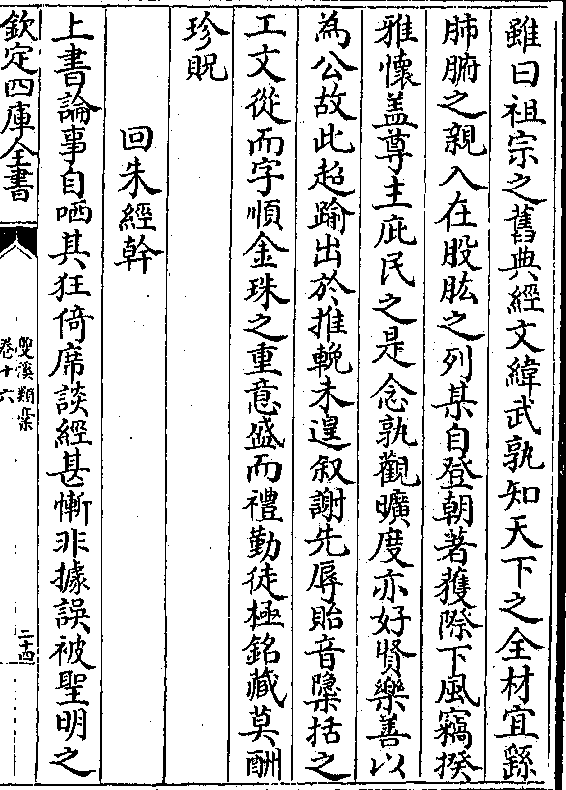 雖曰祖宗之舊典經文緯武孰知天下之全材宜繇
肺腑之親入在股肱之列某自登朝著獲際下風竊揆
雅懷盖尊主庇民之是念孰觀曠度亦好賢樂善以
為公故此超踰出於推輓未遑叙謝先辱貽音檃括之
工文從而字順金珠之重意盛而禮勤徒極銘藏莫酬
珍貺
回朱經幹
上書論事自哂其狂倚席談經甚慚非據誤被聖明之
欽定四庫全書
雙溪類槀
卷十六
二十四